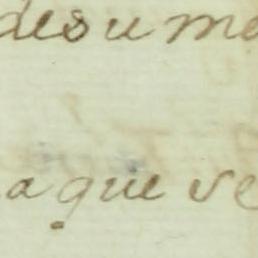 desu me
a que ve